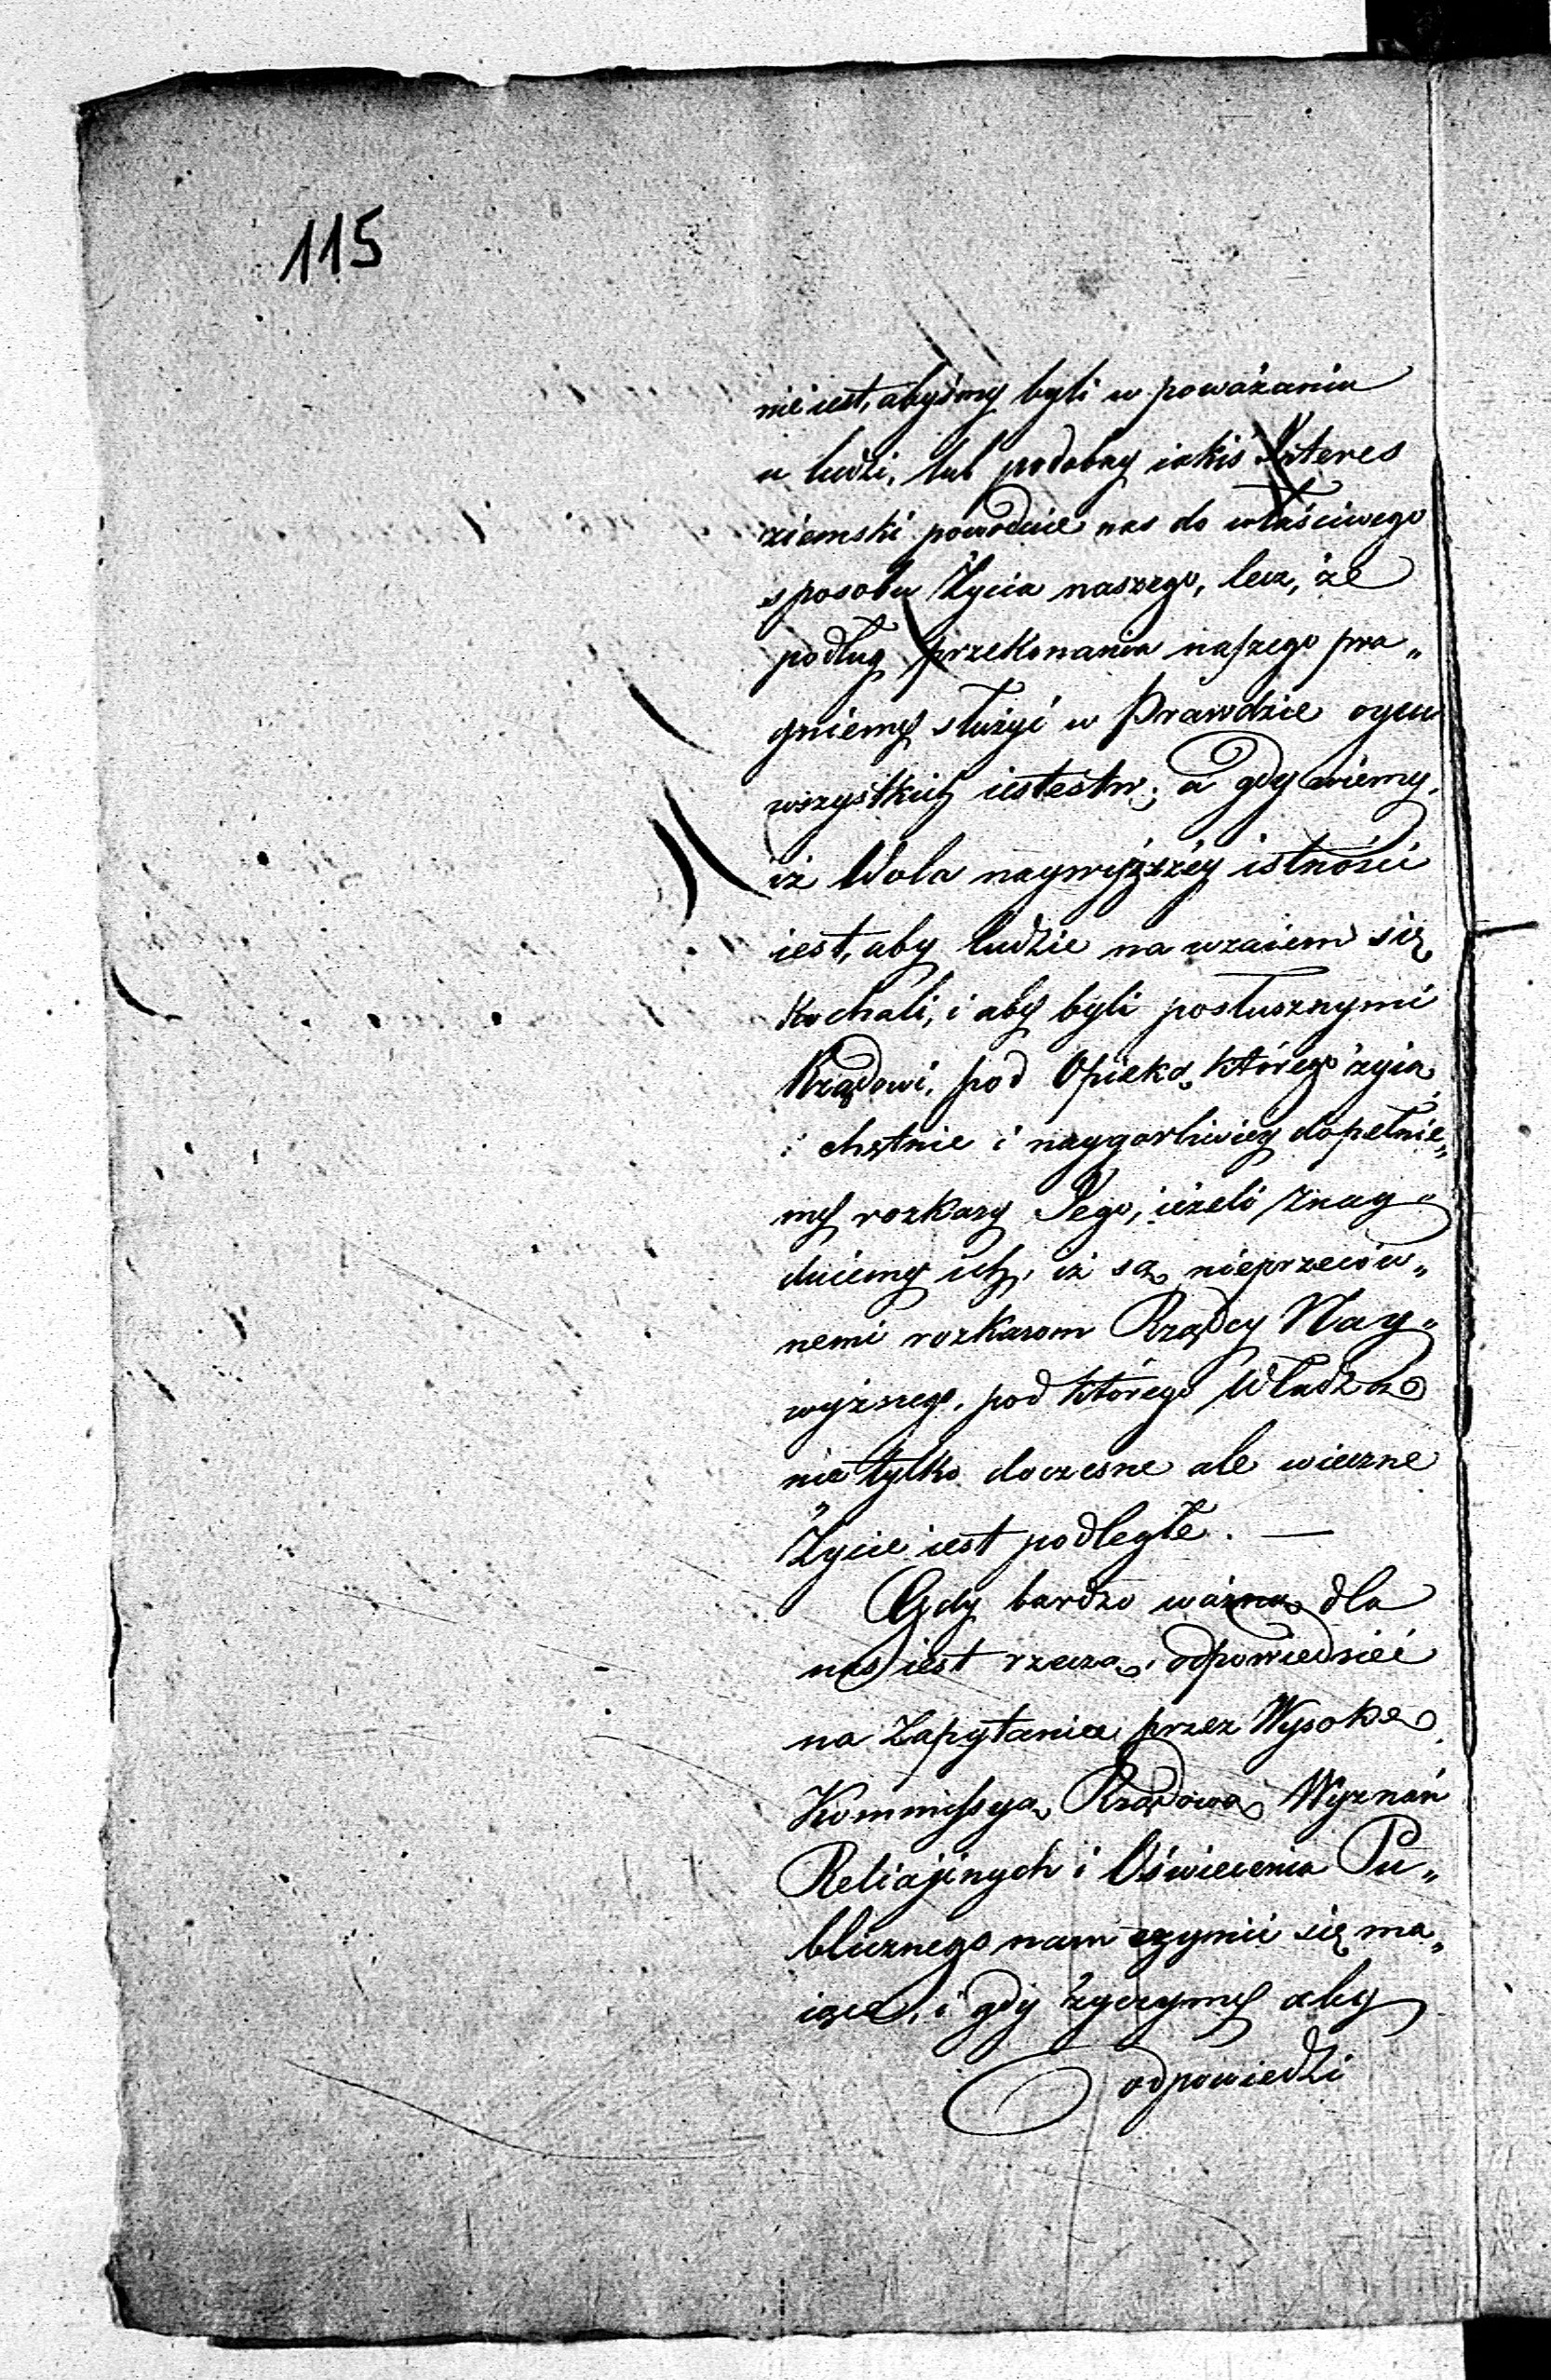 115
nie iest, abyśmy byli w poważaniu
u ludzi, lub podobny iakiś Interes
ziemski powoduie nas do właściwego
sposobu Życia naszego, lecz, że
podług przekonania naszego pra„
gniemy służyć w Prawdzie oycu
wszystkich iestestw; a gdy wiemy,
iż Wola naywyższéy istności
iest, aby ludzie na wzaiem się
kochali, i aby byli posłusznymi
Rządowi, pod Opieką którego żyią,
chętnie i naygorliwiey dopełnie„
my rozkazy Jego, ieżeli znay„
duiemy ich, iż są nieprzeciw„
nemi rozkazom Rządcy Nay„
wyższego, pod którego Władzą
nie tylko doczesne ale wieczne
Życie iest podległe. —
Gdy bardzo ważną dla
nas iest rzeczą, odpowiedzieć
na Zapytania przez Wysoką
Kommissyą Rządową Wyznań
Religijnych i Oświecenia Pu„
blicznego nam czynić się ma„
iące, i gdy życzymy aby
odpowiedzi